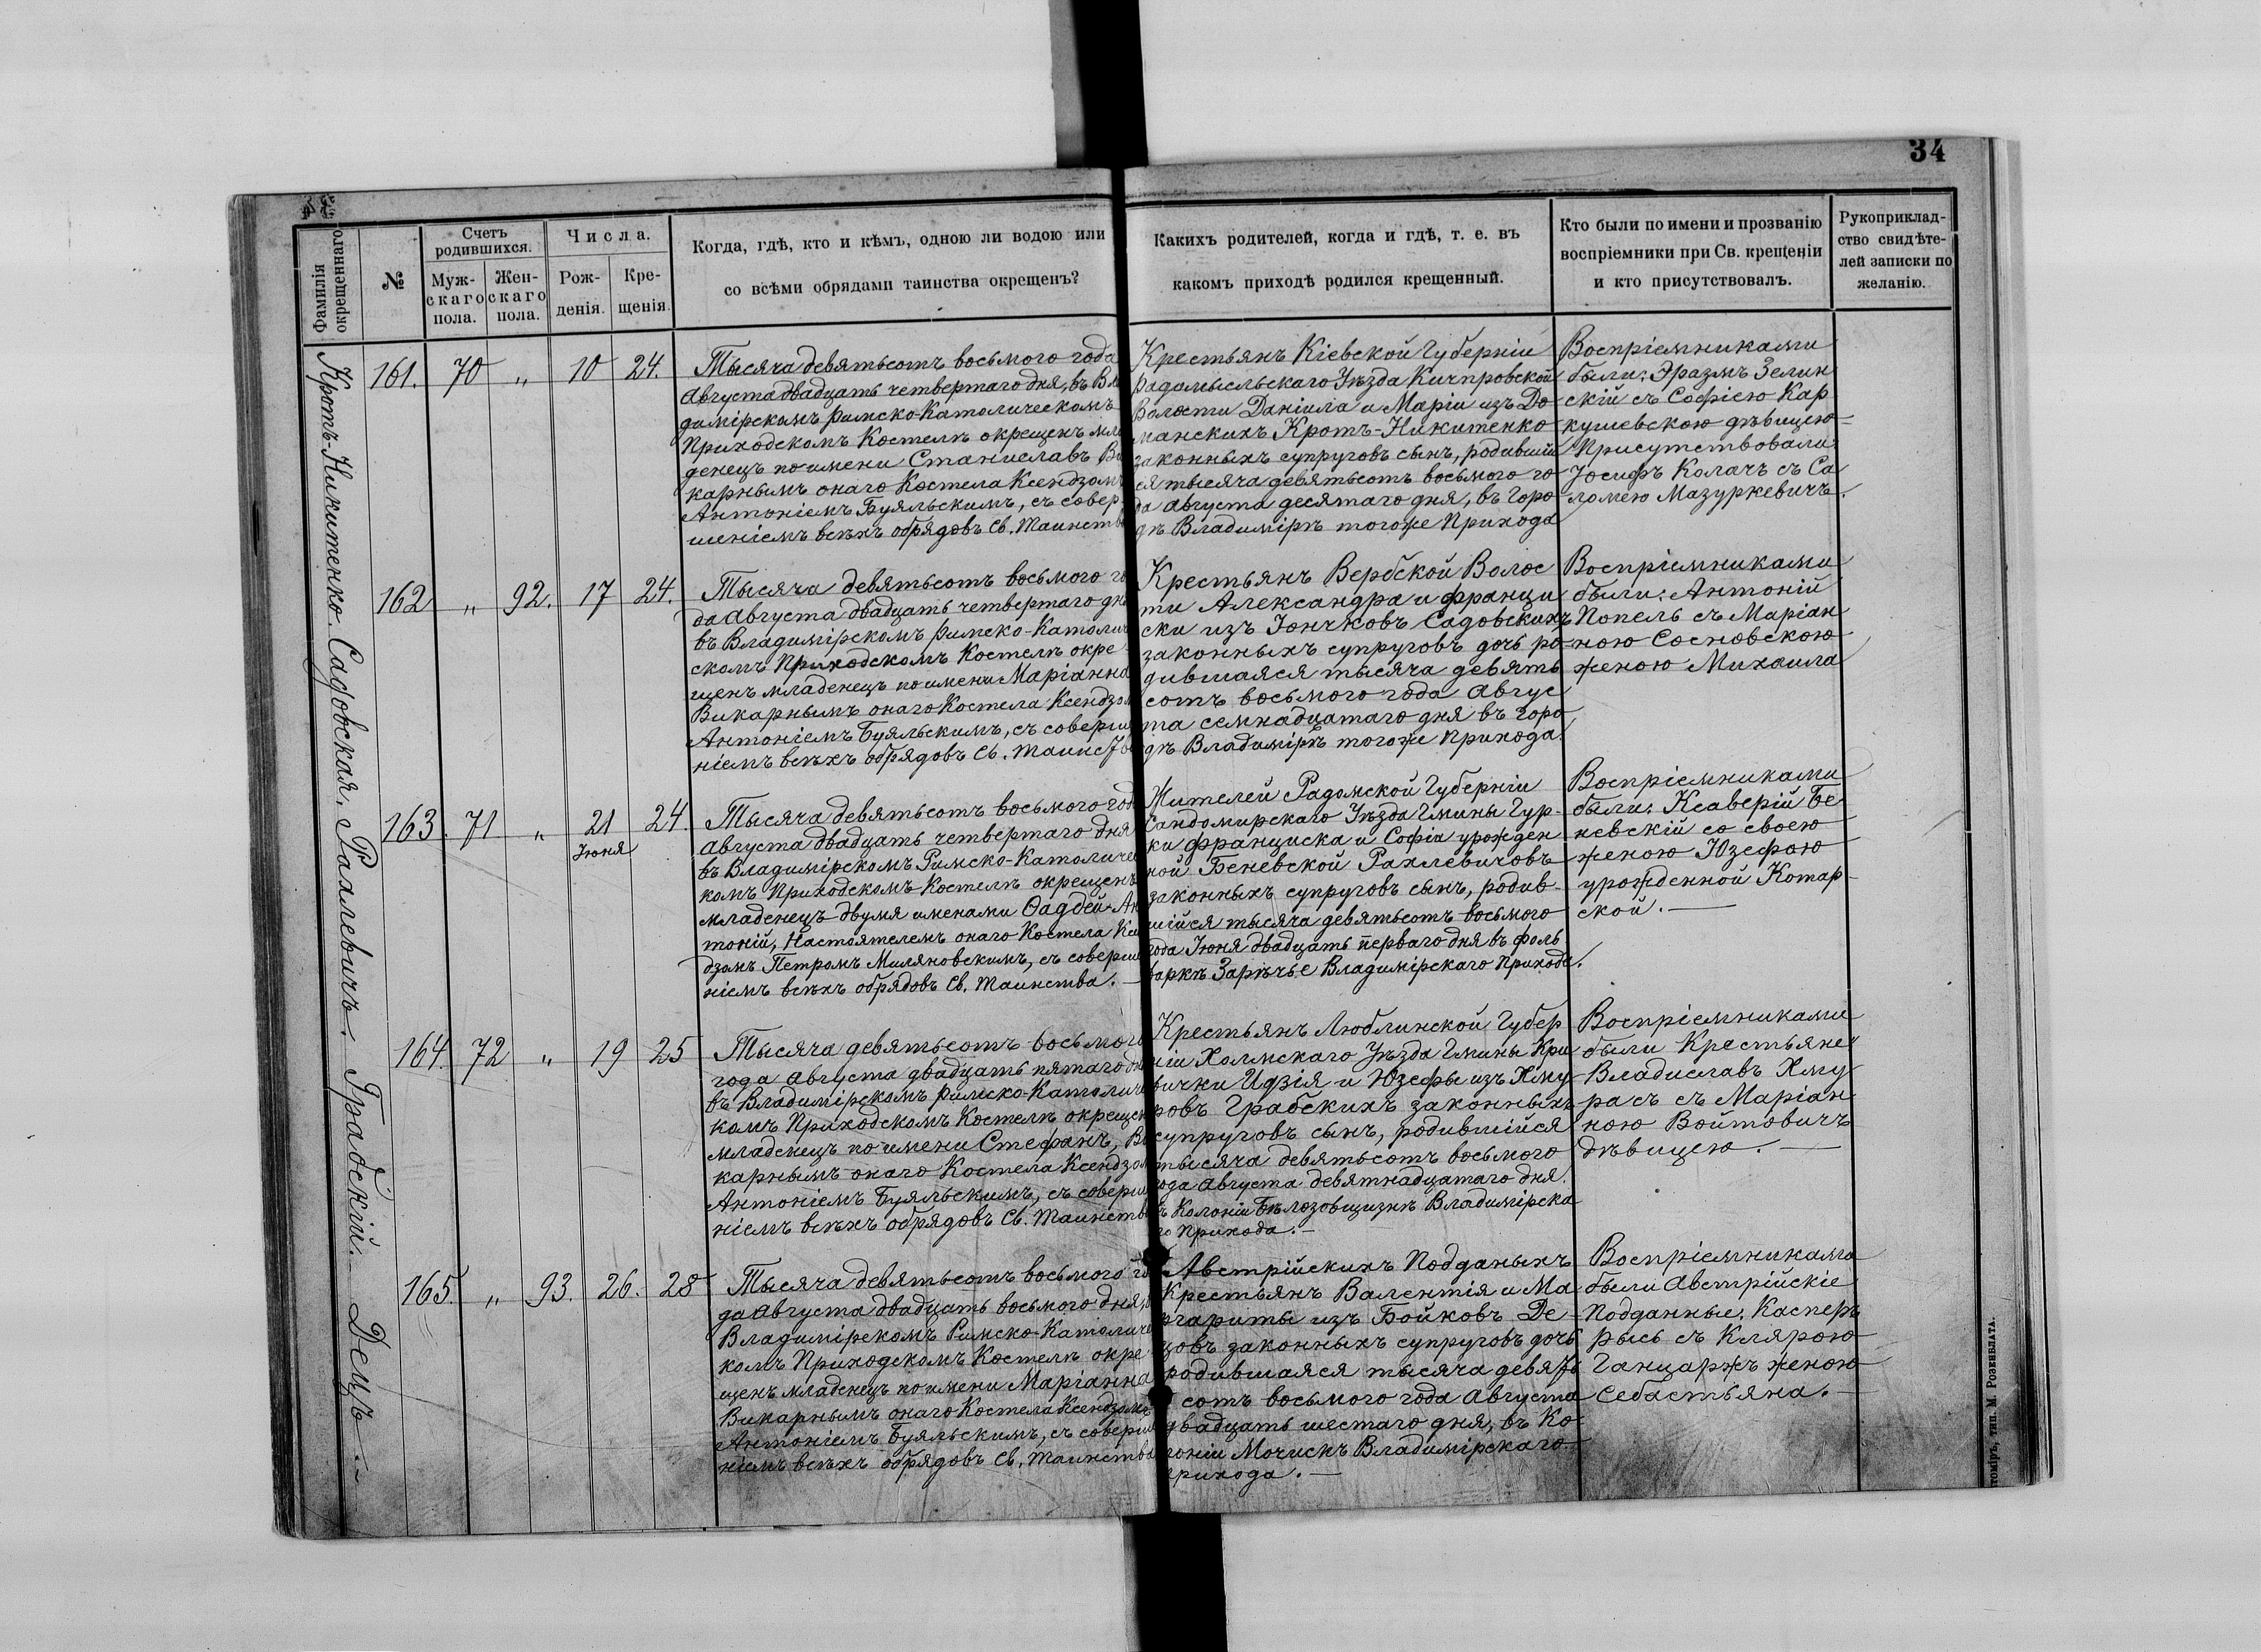 34
Фамилія окрещеннаго
№
Счетъ родившихся.
Муж-скаго пола.
Жен-скаго пола.
Числа.
Рож-денія.
Кре-щенія.
Когда, гдѣ, кто и кѣмъ, одною ли водою или
со всѣми обрядами таинства окрещенъ?
Какихъ родителей, когда и гдѣ, т. е. въ
какомъ приходѣ родился крещенный.
Кто были по имени и прозванію
воспріемники при Св. крещеніи
и кто присутствовалъ.
Рукоприклад-
ство свидѣте-
лей записки по
желанію.
Кротъ-Никитенко. Садовская. Рахлевичъ. Грабскій. Децъ.
161. 70 „ 10 24.
Тысяча девятьсотъ восьмого года
Августа двадцать четвертаго дня, въ Вла
димірскомъ Римско-Католическомъ
Приходскомъ Костелѣ окрещенъ мла
денецъ по имени Станиславъ Ви
карнымъ онаго Костела Ксендзомъ
Антоніемъ Буяльскимъ, съ совер
шеніемъ всѣхъ обрядовъ Св. Таинства
Крестьянъ Кіевской Губерніи
Радомысльскаго Уѣзда Кичпровской
Волости Даніила и Маріи изъ До
манскихъ Кротъ-Никитенко
законныхъ супруговъ сынъ, родившій
ся тысяча девятьсотъ восьмого го
да Августа десятаго дня, въ Горо
дѣ Владимірѣ тогоже Прихода
Воспріемниками
были: Эразмъ Зелин
скій съ Софіею Кар
кушевскою дѣвицею
Присутствовали:
Іосифъ Колачъ съ Са
ломею Мазуркевичъ.
162 „ 92. 17 24.
Тысяча девятьсотъ восьмого го
да Августа двадцать четвертаго дня
въ Владимірскомъ Римско-Католиче
скомъ Приходскомъ Костелѣ окре
щенъ младенецъ по имени Маріанна
Викарнымъ онаго Костела Ксендзом
Антоніемъ Буяльскимъ, съ соверше
ніемъ всѣхъ обрядовъ Св. Таинства
Крестьянъ Вербской Волос
ти Александра и Францис
ски изъ Іончковъ Садовскихъ
законныхъ супруговъ дочь ро
дившаяся тысяча девять
сотъ восьмого года Авгус
та семнадцатаго дня въ Горо
дѣ Владимірѣ тогоже Прихода.
Воспріемниками
были: Антоній
Попель съ Маріан
ною Сосновскою
женою Михаила
163. 71 „ 21 Іюня 24.
Тысяча девятьсотъ восьмого года
Августа двадцать четвертаго дня
въ Владимірскомъ Римско-Католичес
комъ Приходскомъ Костелѣ окрещенъ
младенецъ двумя именами Ѳаддей-Ан
тоній, Настоятелемъ онаго Костела Ксен
дзомъ Петромъ Миляновскимъ, съ соверше
ніемъ всѣхъ обрядовъ Св. Таинства.
Жителей Радомской Губерніи
Сандомирскаго Уѣзда Гмины Гур-
ки Франциска и Софіи урожден
ной Беневской Рахлевичовъ
законныхъ супруговъ сынъ, родив-
шійся тысяча девятьсотъ восьмого
года Іюня двадцать перваго дня въ фоль
варкѣ Зарѣчье Владимірскаго Прихода.
Воспріемниками
были: Ксаверій Бе
невскій со своею
женою Юзефою
урожденной Котар-
ской.
164. 72 „ 19 25
Тысяча девятьсотъ восьмого
года Августа двадцать пятаго дня
въ Владимірскомъ Римско-Католичес
комъ Приходскомъ Костелѣ окрещен
младенецъ по имени Стефанъ, Ви
карнымъ онаго Костела Ксендзом
Антоніемъ Буяльскимъ, съ соверше
ніемъ всѣхъ обрядовъ Св. Таинства
Крестьянъ Люблинской Губер
ніи Холмскаго Уѣзда Гмины Кри
вички Идзія и Юзефы изъ Хму
ровъ Грабскихъ законныхъ
супруговъ сынъ, родившійся
тысяча девятьсотъ восьмого
года Августа девятнадцатаго дня.
въ Колоніи Бѣлозовщизнѣ Владимірска
го Прихода.
Воспріемниками
были Крестьяне:
Владиславъ Хму
расъ съ Маріан
ною Войтовичъ
дѣвицею.
165. „ 93. 26. 28
Тысяча девятьсотъ восьмого го
да Августа двадцать восьмого дня, въ
Владимірскомъ Римско-Католичес
комъ Приходскомъ Костелѣ окре
щенъ младенецъ по имени Маріанна
Викарнымъ онаго Костела Ксендзомъ
Антоніемъ Буяльскимъ, съ соверше
ніемъ всѣхъ обрядовъ Св. Таинства
Австрійскихъ Подданыхъ
Крестьянъ Валентія и Ма
ргариты изъ Бойковъ Де-
цовъ законныхъ супруговъ дочь
родившаяся тысяча девять
сотъ восьмого года Августа
двадцать шестаго дня, въ Ко-
лоніи Мочискъ Владимірскаго
Прихода.
Воспріемниками
были Австрійскіе
Подданные: Касперъ
Рысь съ Клярою
Ганцаржъ женою
Себастьяна.
томіръ, тип. М. Розенблата.